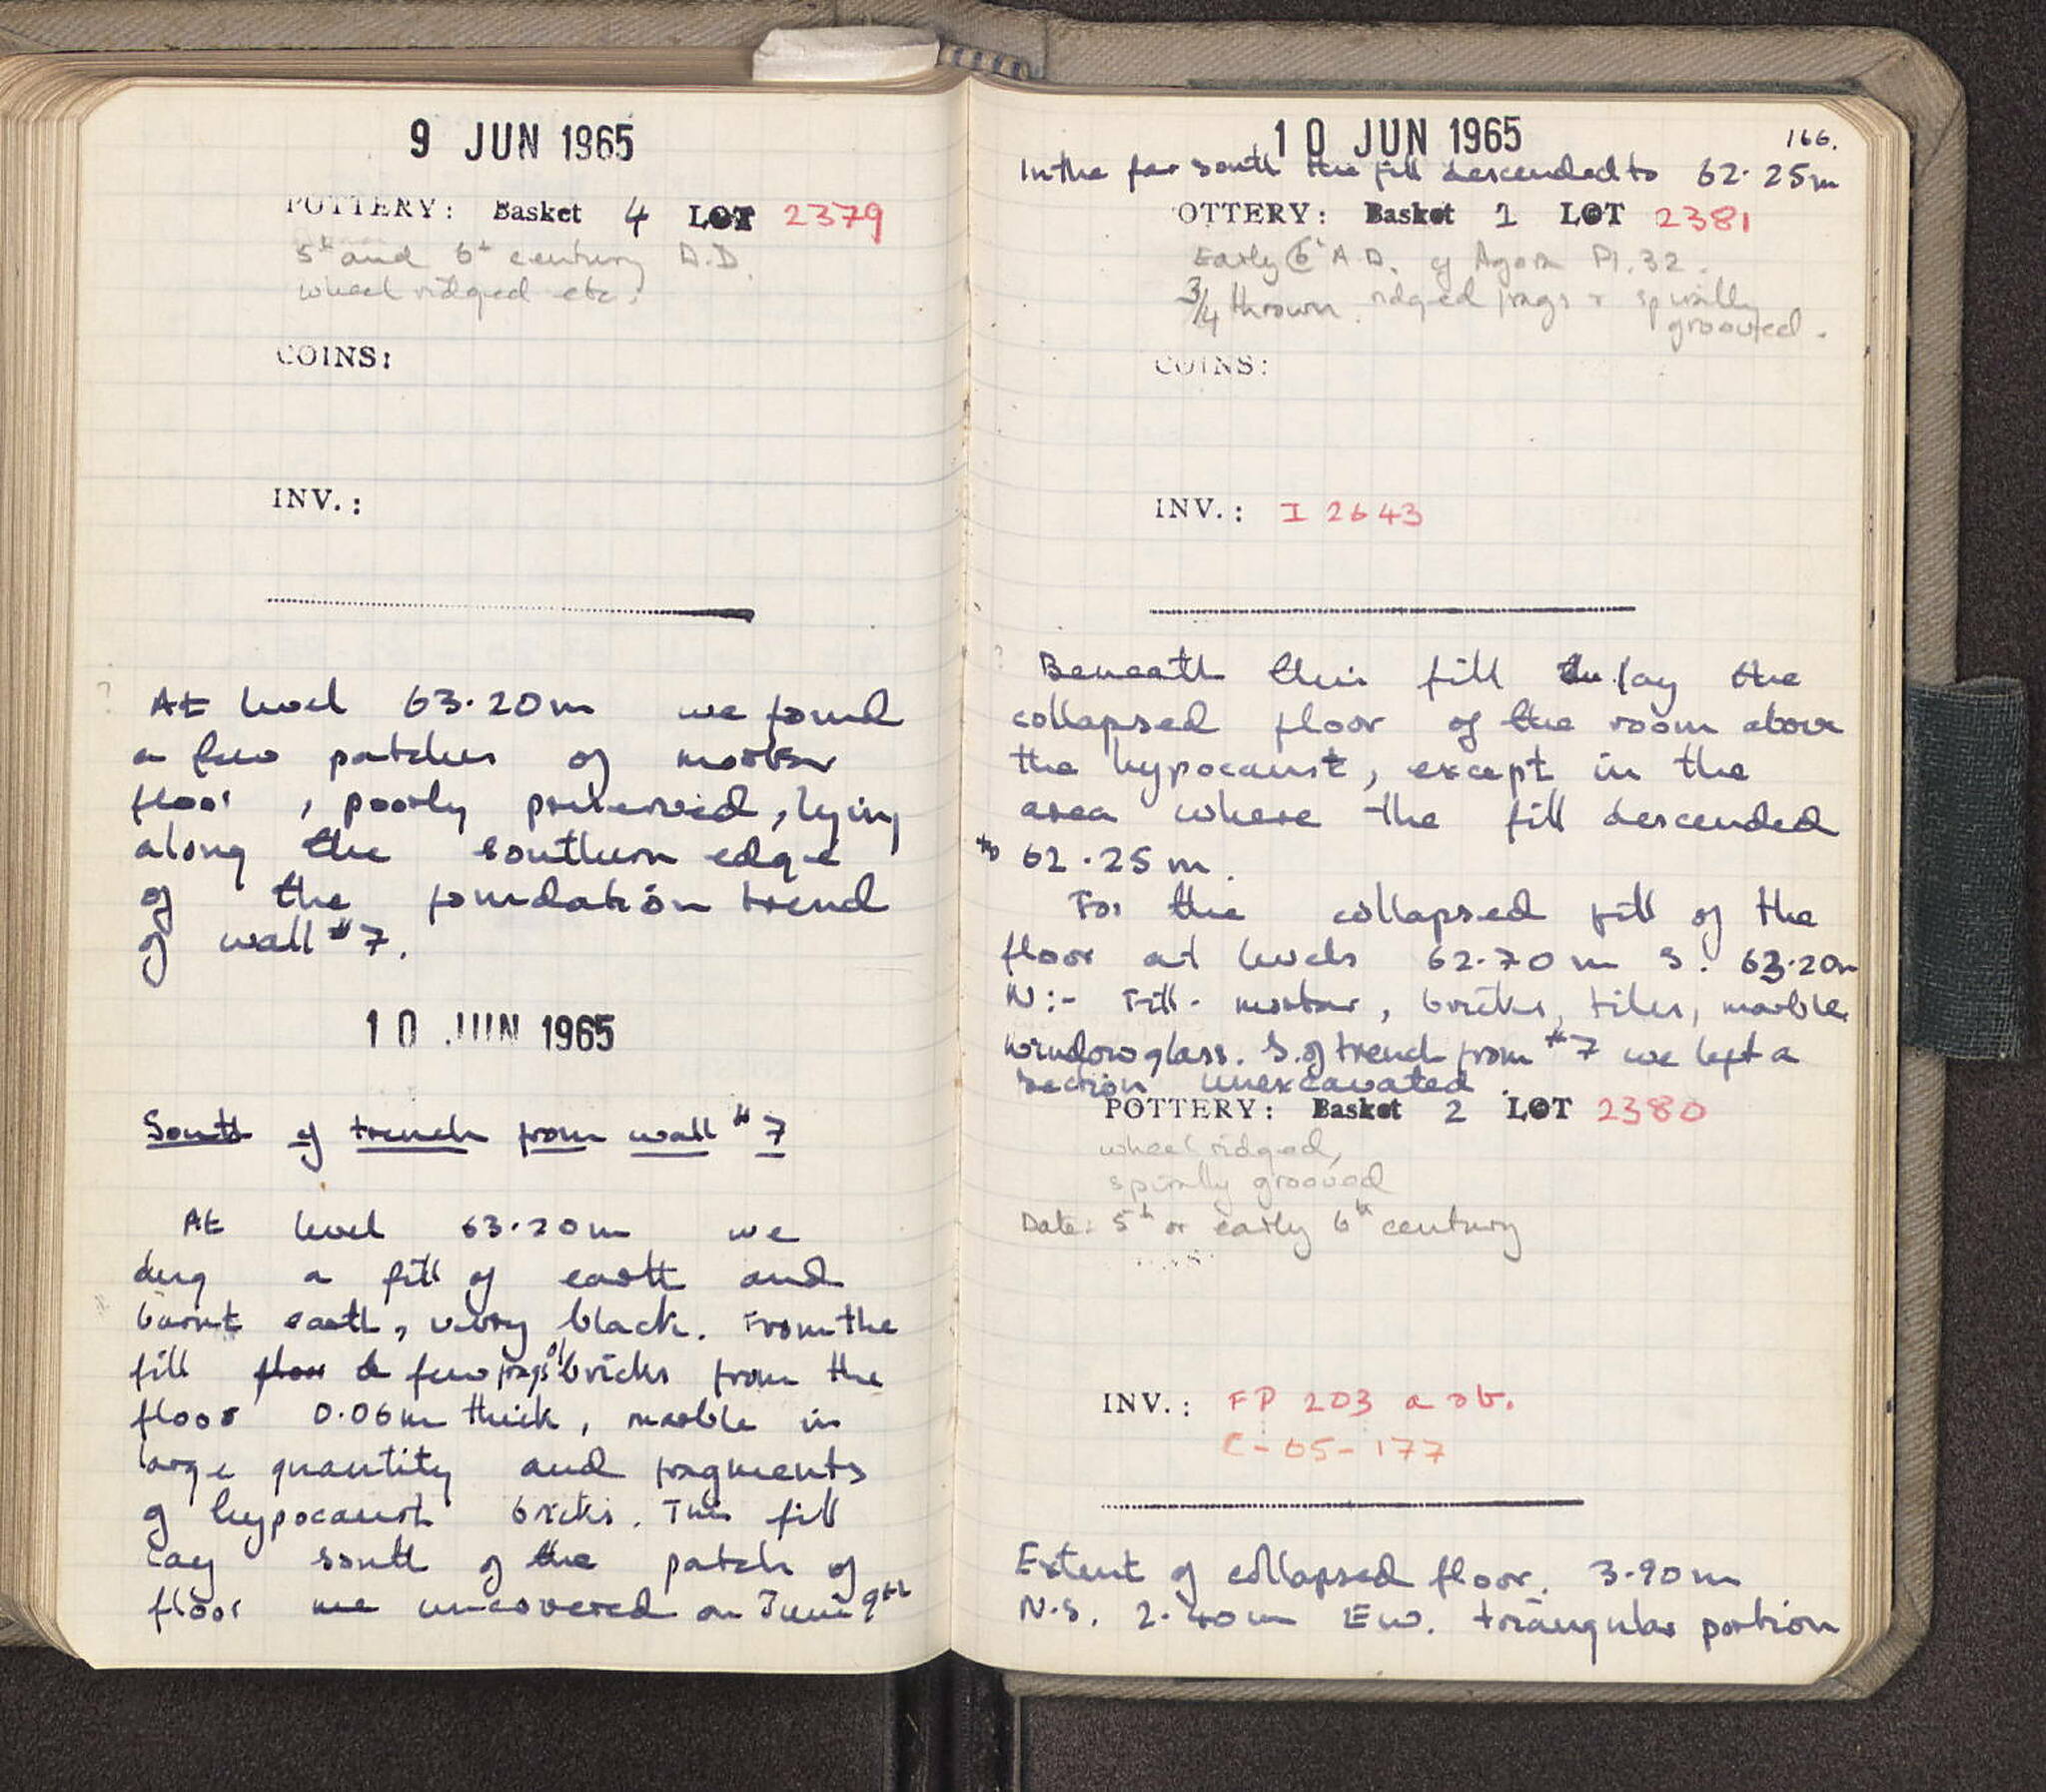 9 JUN 1965
POTTERY: Basket 4 LOT 2379
5th and 6th century A.D.
wheel ridged etc.
COINS:
INV.:
At level 63.20m we found
a few patches of mortar
floor, poorly preserved, lying
along the southern edge
of the foundation trend
of wall #7.
10 JUN 1965
South of trench from wall #7
At level 63.20m we
dug a fill of earth and
burnt earth, very black. From the
fill floor a few frags of bricks from the
floor 0.06m thick, marble in
large quantity and fragments
of hypocaust bricks. This fill
lay south of the patch of
floor we uncovered on June 9th
10 JUN 1965
166.
In the far south the fill descended to 62.25m
OTTERY: Basket 1 LOT 2381
Early 6th A.D. cf Agora Pl. 32.
3/4 thrown. ridged frags + spirally
grooved.
COINS:
INV.: I 2643
Beneath this fill lay the
collapsed floor of the room above
the hypocaust, except in the
area where the fill descended
to 62.25m.
For the collapsed fill of the
floor at levels 62.70m S. 63.20m
N:- Fill- mortar, bricks, tiles, marble
window glass. S. of trench from #7 we left a
section unexcavated.
POTTERY: Basket 2 LOT 2380
wheel ridged,
spirally grooved
Date: 5th or early 6th century
INV.: FP 203 a+b.
C-65-177
Extent of collapsed floor. 3.90m
N.S. 2.40m EW. triangular portion